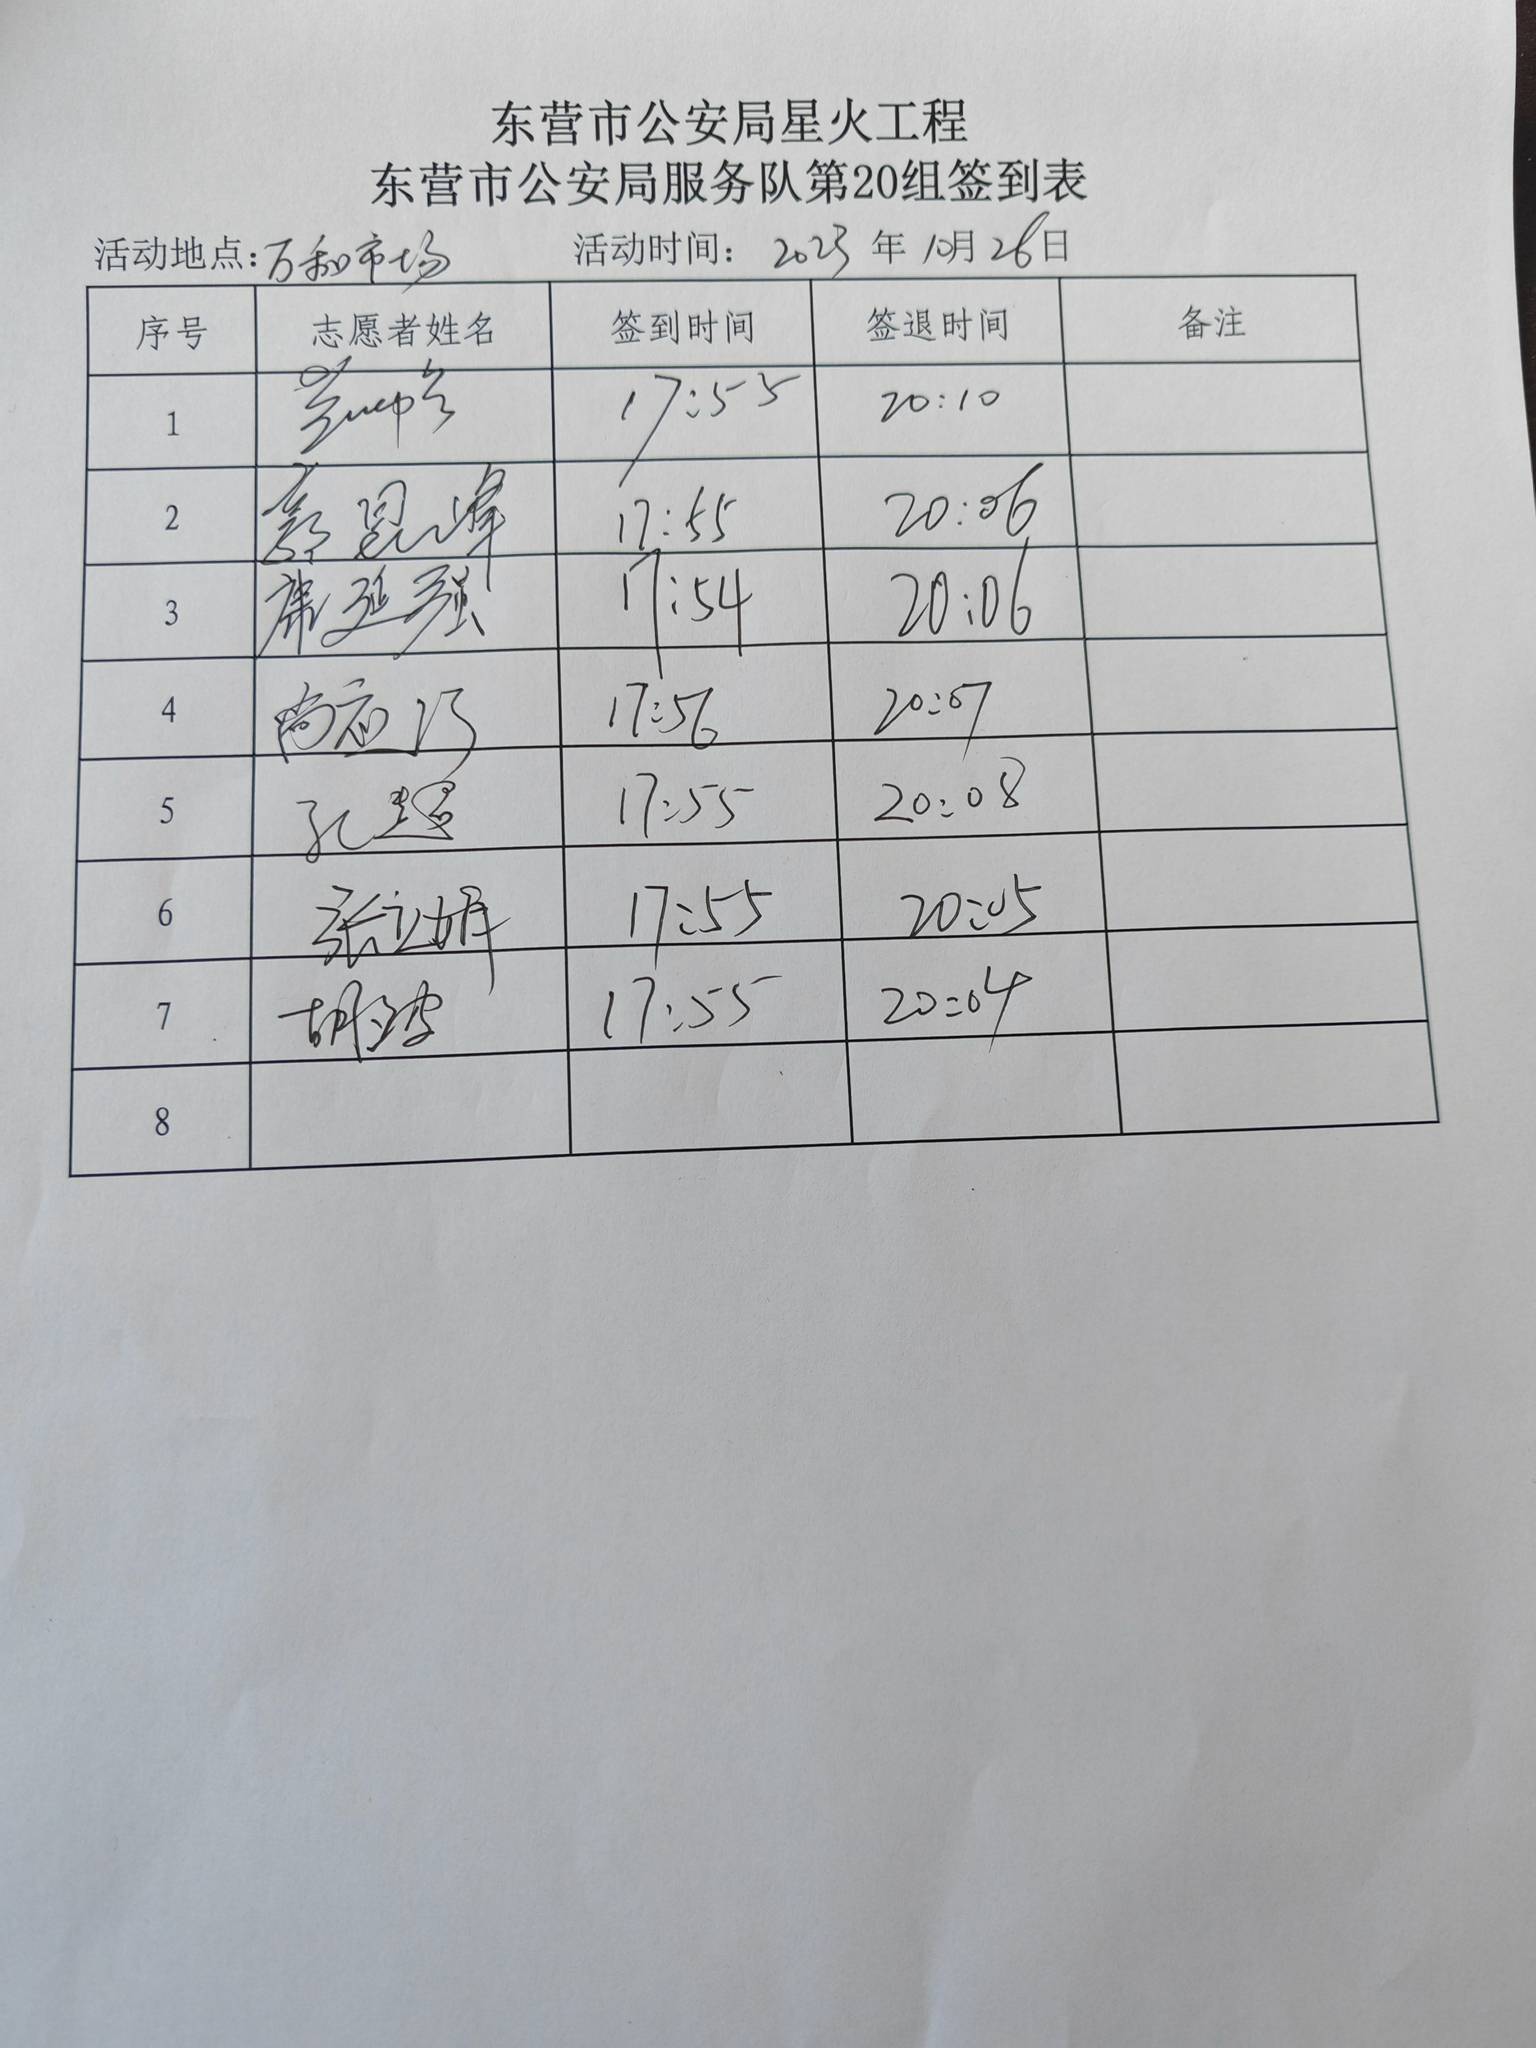 东营市公安局星火工程
东营市公安局服务队第20组签到表
活动地点：万和市场 活动时间： 2023 年 10月 26日
序号 志愿者姓名 签到时间 签退时间 备注
1 17:55 20:10
2 郭昆峰 17:55 20:06
3 席延强 17:54 20:06
4 尚 17:56 20:07
5 孔超 17:55 20:08
6 张立娟 17:55 20:05
7 胡波 17:55 20:04
8